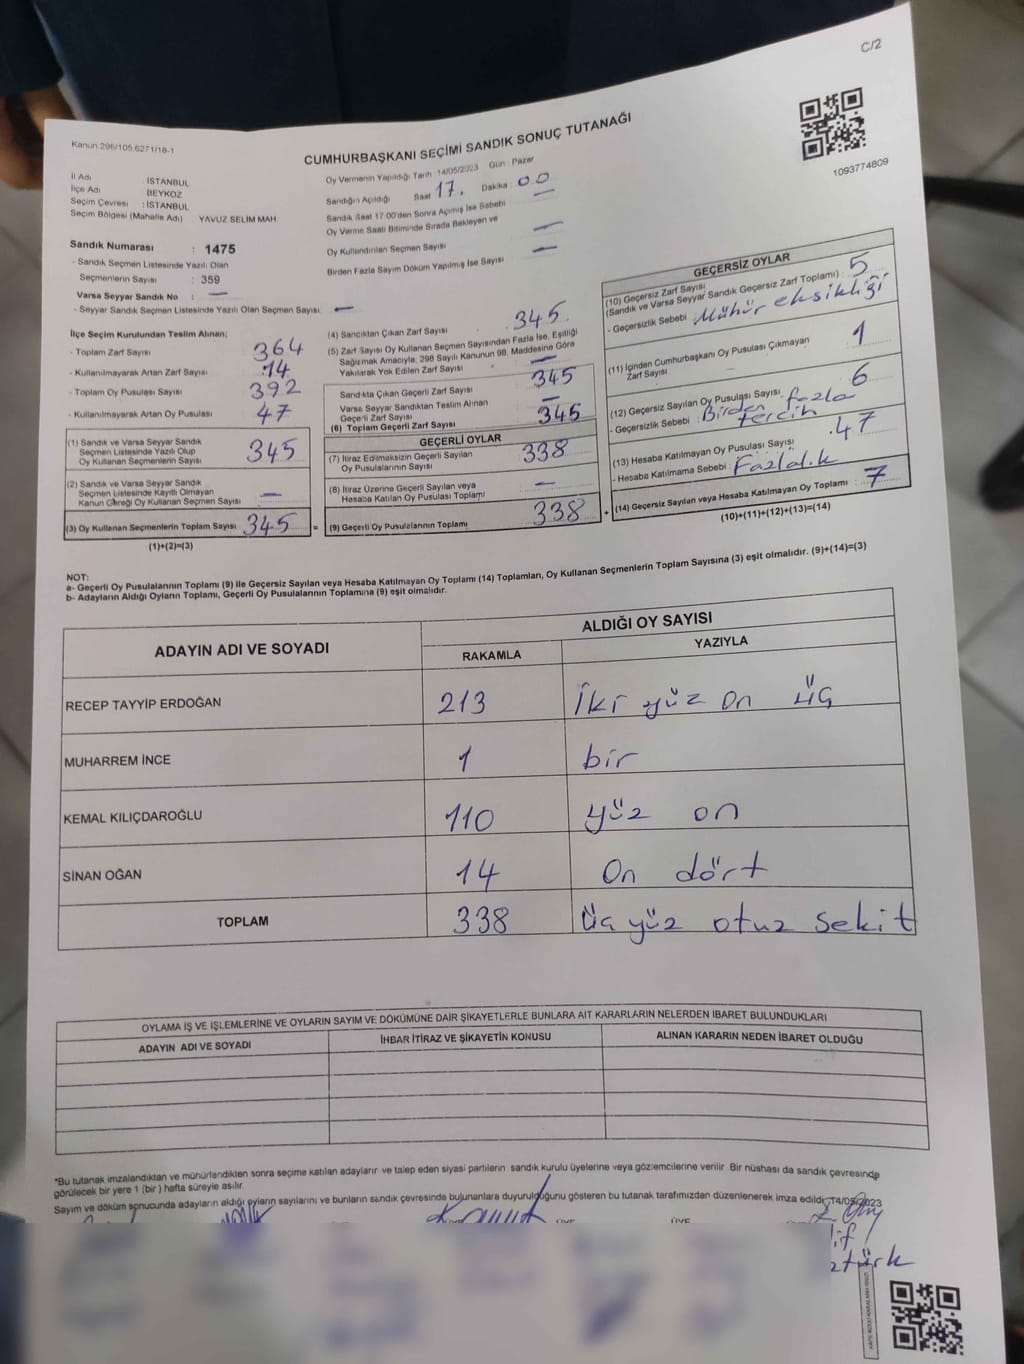 C/2
Kanun 298/105,6271/18-1
CUMHURBAŞKANI SEÇİMİ SANDIK SONUÇ TUTANAĞI
1093774809
İl Adı : İSTANBUL
İlçe Adı : BEYKOZ
Seçim Çevresi : İSTANBUL
Seçim Bölgesi (Mahalle Adı) YAVUZ SELİM MAH
Oy Vermenin Yapıldığı Tarih 14/05/2023 Gün : Pazar
Sandığın Açıldığı Saat 17. Dakika : 00
Sandık Saat 17:00'den Sonra Açılmış İse Sebebi —
Oy Verme Saati Bitiminde Sırada Bekleyen ve
Oy Kullandırılan Seçmen Sayısı —
Birden Fazla Sayım Döküm Yapılmış İse Sayısı —
Sandık Numarası : 1475
- Sandık Seçmen Listesinde Yazılı Olan
Seçmenlerin Sayısı : 359
Varsa Seyyar Sandık No : —
- Seyyar Sandık Seçmen Listesinde Yazılı Olan Seçmen Sayısı: —
İlçe Seçim Kurulundan Teslim Alınan;
- Toplam Zarf Sayısı 364
- Kullanılmayarak Artan Zarf Sayısı : 14
- Toplam Oy Pusulası Sayısı 392
- Kullanılmayarak Artan Oy Pusulası 47
(1) Sandık ve Varsa Seyyar Sandık
Seçmen Listesinde Yazılı Olup
Oy Kullanan Seçmenlerin Sayısı 345
(2) Sandık ve Varsa Seyyar Sandık
Seçmen Listesinde Kayıtlı Olmayan
Kanun Gereği Oy Kullanan Seçmen Sayısı —
(3) Oy Kullanan Seçmenlerin Toplam Sayısı 345 =
(1)+(2)=(3)
(4) Sandıktan Çıkan Zarf Sayısı : 345
(5) Zarf Sayısı Oy Kullanan Seçmen Sayısından Fazla İse, Eşitliği
Sağlamak Amacıyla, 298 Sayılı Kanunun 98. Maddesine Göre
Yakılarak Yok Edilen Zarf Sayısı : —
Sandıkta Çıkan Geçerli Zarf Sayısı 345
Varsa Seyyar Sandıktan Teslim Alınan
Geçerli Zarf Sayısı —
(6) Toplam Geçerli Zarf Sayısı 345
GEÇERLİ OYLAR
(7) İtiraz Edilmeksizin Geçerli Sayılan
Oy Pusulalarının Sayısı 338
(8) İtiraz Üzerine Geçerli Sayılan veya
Hesaba Katılan Oy Pusulası Toplamı —
(9) Geçerli Oy Pusulalarının Toplamı 338 +
GEÇERSİZ OYLAR
(10) Geçersiz Zarf Sayısı
(Sandık ve Varsa Seyyar Sandık Geçersiz Zarf Toplamı) : 5
- Geçersizlik Sebebi : Mühür eksikliği
(11) İçinden Cumhurbaşkanı Oy Pusulası Çıkmayan
Zarf Sayısı 1
(12) Geçersiz Sayılan Oy Pusulası Sayısı : 6
- Geçersizlik Sebebi : Birden fazla
tercih
(13) Hesaba Katılmayan Oy Pusulası Sayısı : 47
- Hesaba Katılmama Sebebi : Fazlalık
(14) Geçersiz Sayılan veya Hesaba Katılmayan Oy Toplamı : 7
(10)+(11)+(12)+(13)=(14)
NOT:
a- Geçerli Oy Pusulalarının Toplamı (9) ile Geçersiz Sayılan veya Hesaba Katılmayan Oy Toplamı (14) Toplamları, Oy Kullanan Seçmenlerin Toplam Sayısına (3) eşit olmalıdır. (9)+(14)=(3)
b- Adayların Aldığı Oyların Toplamı, Geçerli Oy Pusulalarının Toplamına (9) eşit olmalıdır.
ADAYIN ADI VE SOYADI
ALDIĞI OY SAYISI
RAKAMLA YAZIYLA
RECEP TAYYİP ERDOĞAN 213 İki yüz on üç
MUHARREM İNCE 1 bir
KEMAL KILIÇDAROĞLU 110 yüz on
SİNAN OĞAN 14 On dört
TOPLAM 338 üç yüz otuz sekit
OYLAMA İŞ VE İŞLEMLERİNE VE OYLARIN SAYIM VE DÖKÜMÜNE DAİR ŞİKAYETLERLE BUNLARA AİT KARARLARIN NELERDEN İBARET BULUNDUKLARI
ADAYIN ADI VE SOYADI İHBAR İTİRAZ VE ŞİKAYETİN KONUSU ALINAN KARARIN NEDEN İBARET OLDUĞU
*Bu tutanak imzalandıktan ve mühürlendikten sonra seçime katılan adayların ve talep eden siyasi partilerin sandık kurulu üyelerine veya gözlemcilerine verilir .Bir nüshası da sandık çevresinde
görülecek bir yere 1 (bir ) hafta süreyle asılır.
Sayım ve döküm sonucunda adayların aldığı oyların sayılarını ve bunların sandık çevresinde bulunanlara duyurulduğunu gösteren bu tutanak tarafımızdan düzenlenerek imza edildi. 14/05/2023
ÜYE